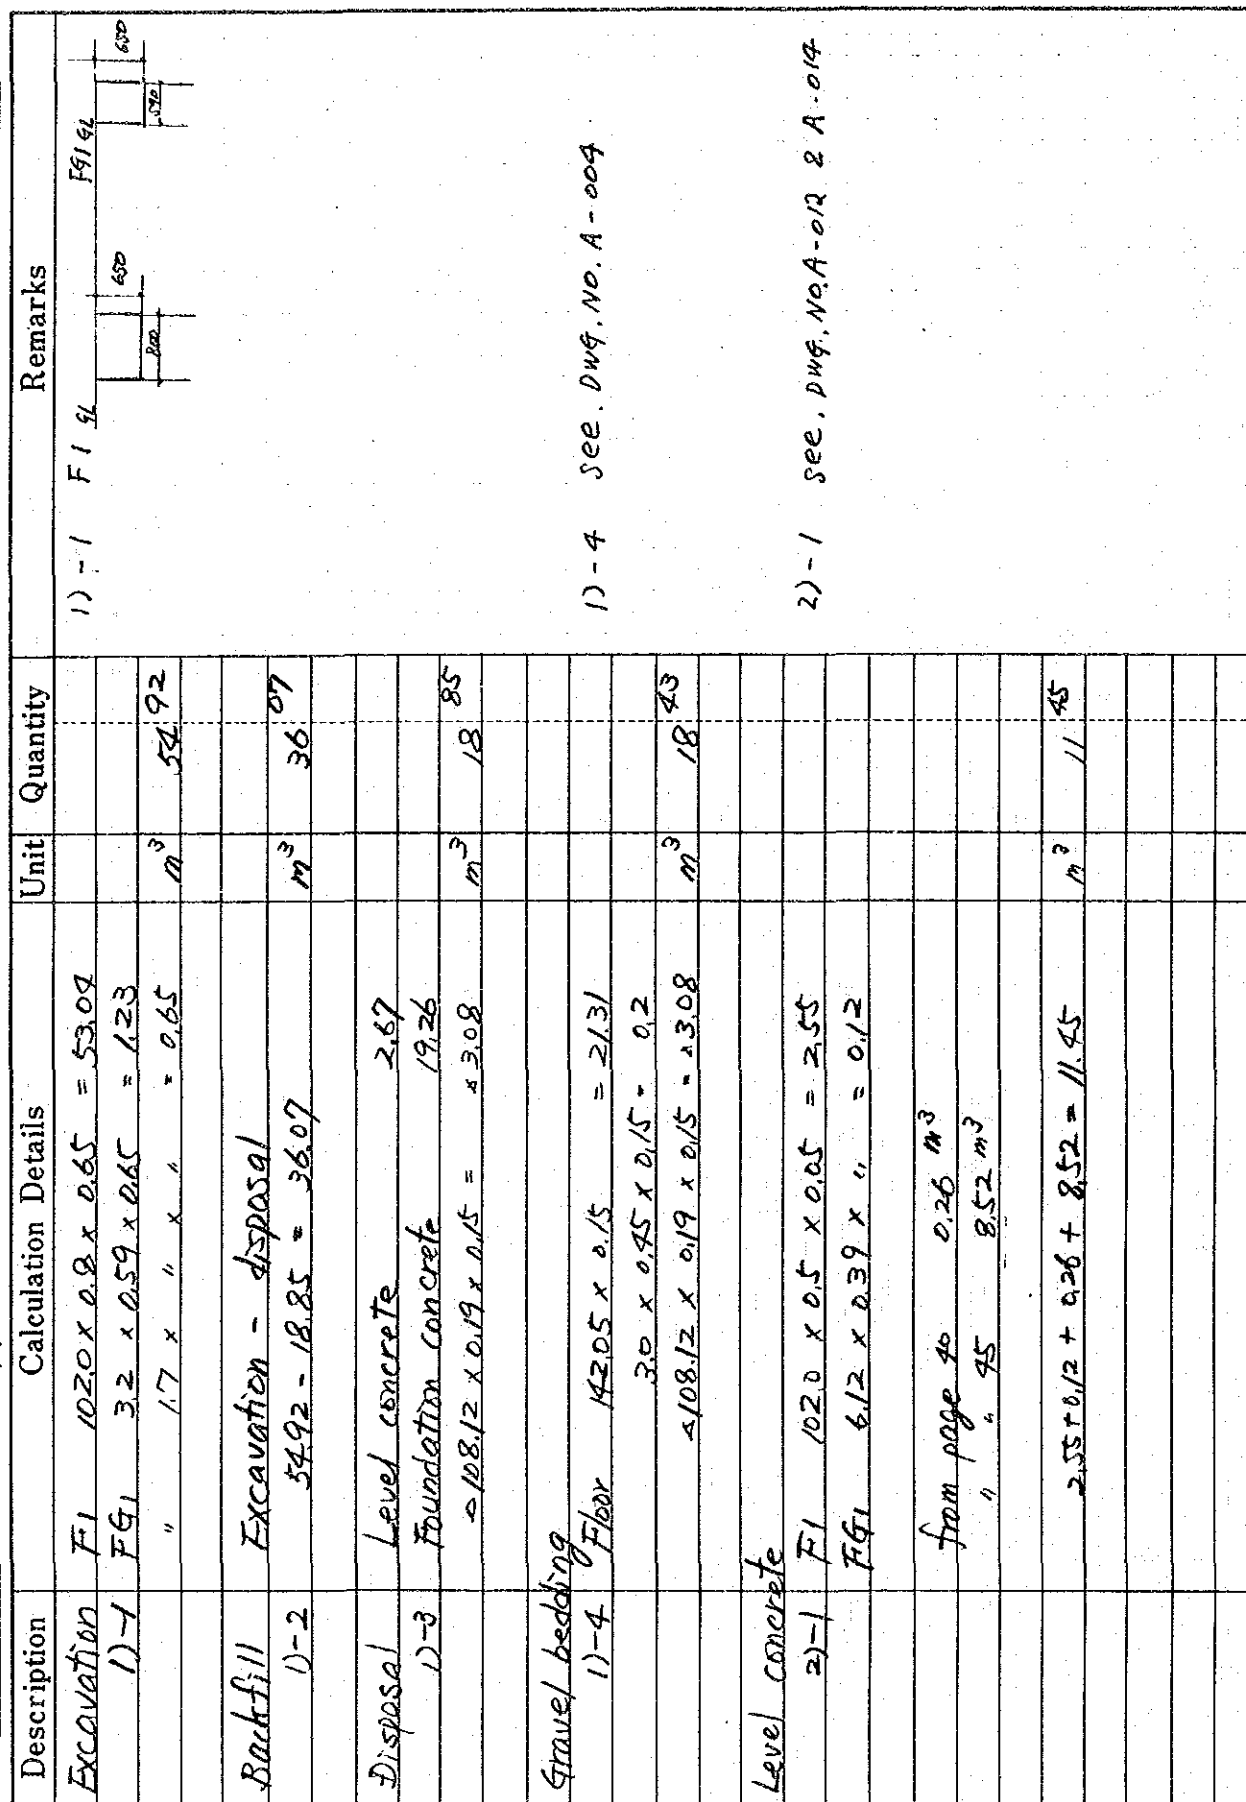 Description Calculation Details Unit Quantity Remarks
Excavation F1 102.0 x 0.8 x 0.65 = 53.04 1)-1 F1 GL 800 650 FG1 GL 590 650
1)-1 FG1 3.2 x 0.59 x 0.65 = 1.23
" 1.7 x " x " = 0.65 m³ 54 92
Backfill Excavation - disposal
1)-2 54.92 - 18.85 = 36.07 m³ 36 07
Disposal Level concrete 2.67
1)-3 Foundation concrete 19.26
△108.12 x 0.19 x 0.15 = △3.08 m³ 18 85
Gravel bedding
1)-4 Floor 142.05 x 0.15 = 21.31 1)-4 see. DWG. NO. A-004
3.0 x 0.45 x 0.15 = 0.2
△108.12 x 0.19 x 0.15 = △3.08 m³ 18 43
Level concrete
2)-1 F1 102.0 x 0.5 x 0.05 = 2.55 2)-1 see. DWG. NO. A-012 & A-014
FG1 6.12 x 0.39 x " = 0.12
from page 40 0.26 m³
" " 45 8.52 m³
2.55 + 0.12 + 0.26 + 8.52 = 11.45 m³ 11 45